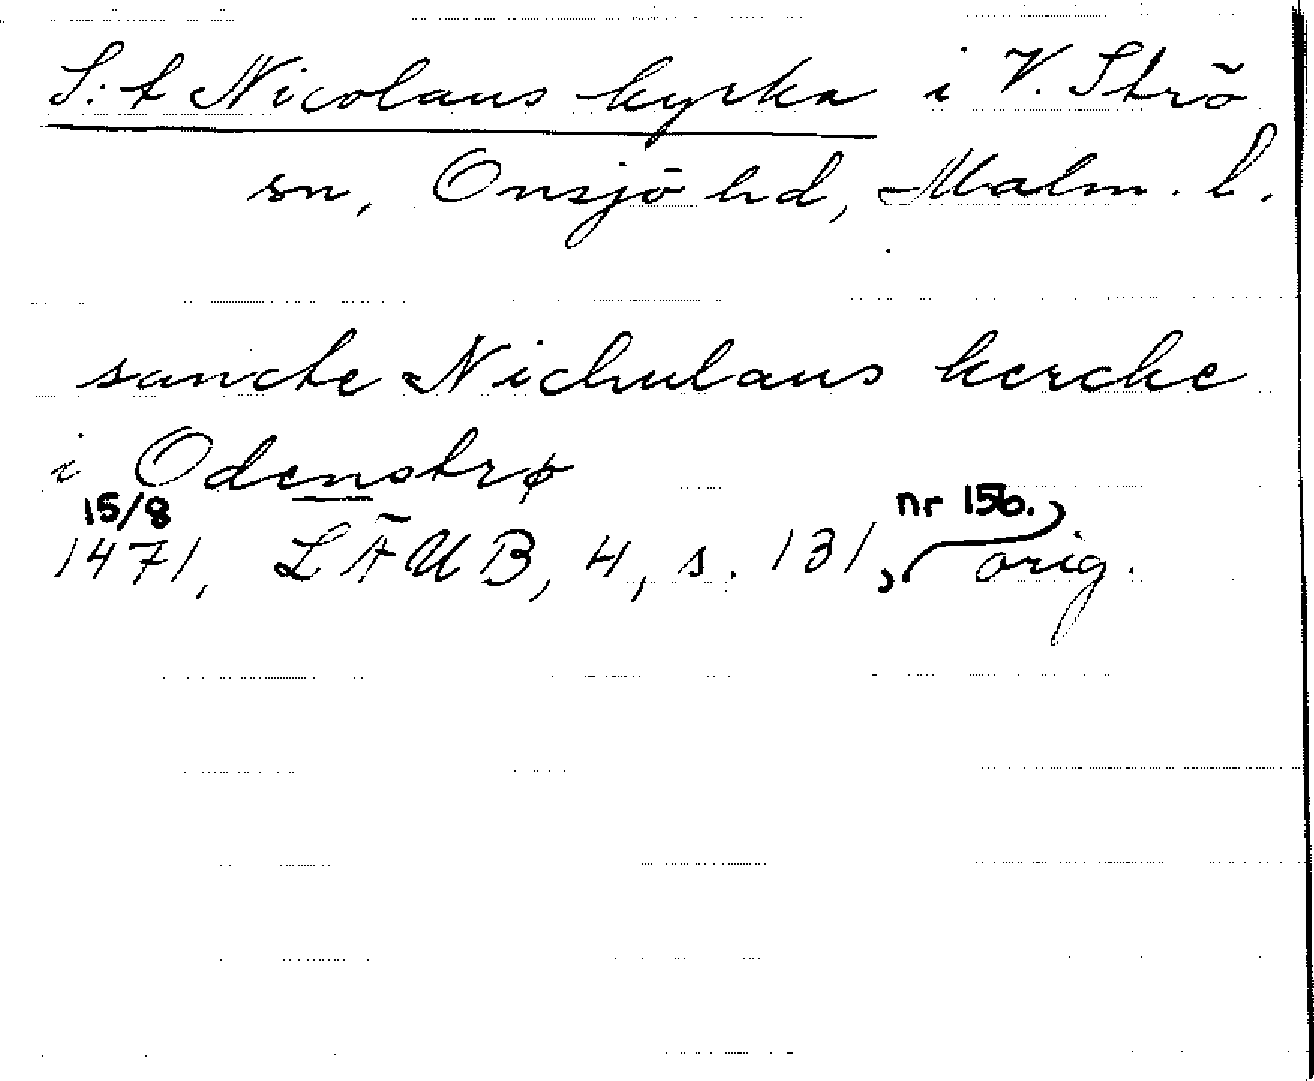 S:t Nicolaus kyrka i V. Strö
sn, Onsjö hd, Malm. l.
sancte Nichulaus kercke
i Odenstrø
15/8 nr 156.
1471, LÄUB, 4, s. 131, orig.